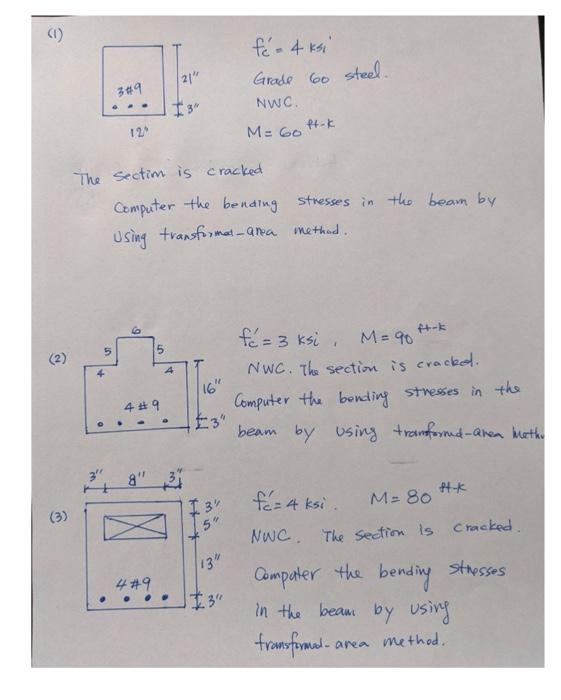 (1)
fc' = 4 ksi
Grade 60 steel.
NWC.
M = 60 ft-k
3#9
21"
3"
12"
The section is cracked
Computer the bending stresses in the beam by
Using transformed-area method.
(2)
6
5
5
4
4
4#9
16"
3"
fc' = 3 ksi , M = 90 ft-k
NWC. The section is cracked.
Computer the bending stresses in the
beam by using transformed-area
(3)
3" 8" 3"
3"
5"
13"
3"
4#9
fc' = 4 ksi. M = 80 ft-k
NWC. The section is cracked.
Computer the bending stresses
in the beam by using
transformed-area method.